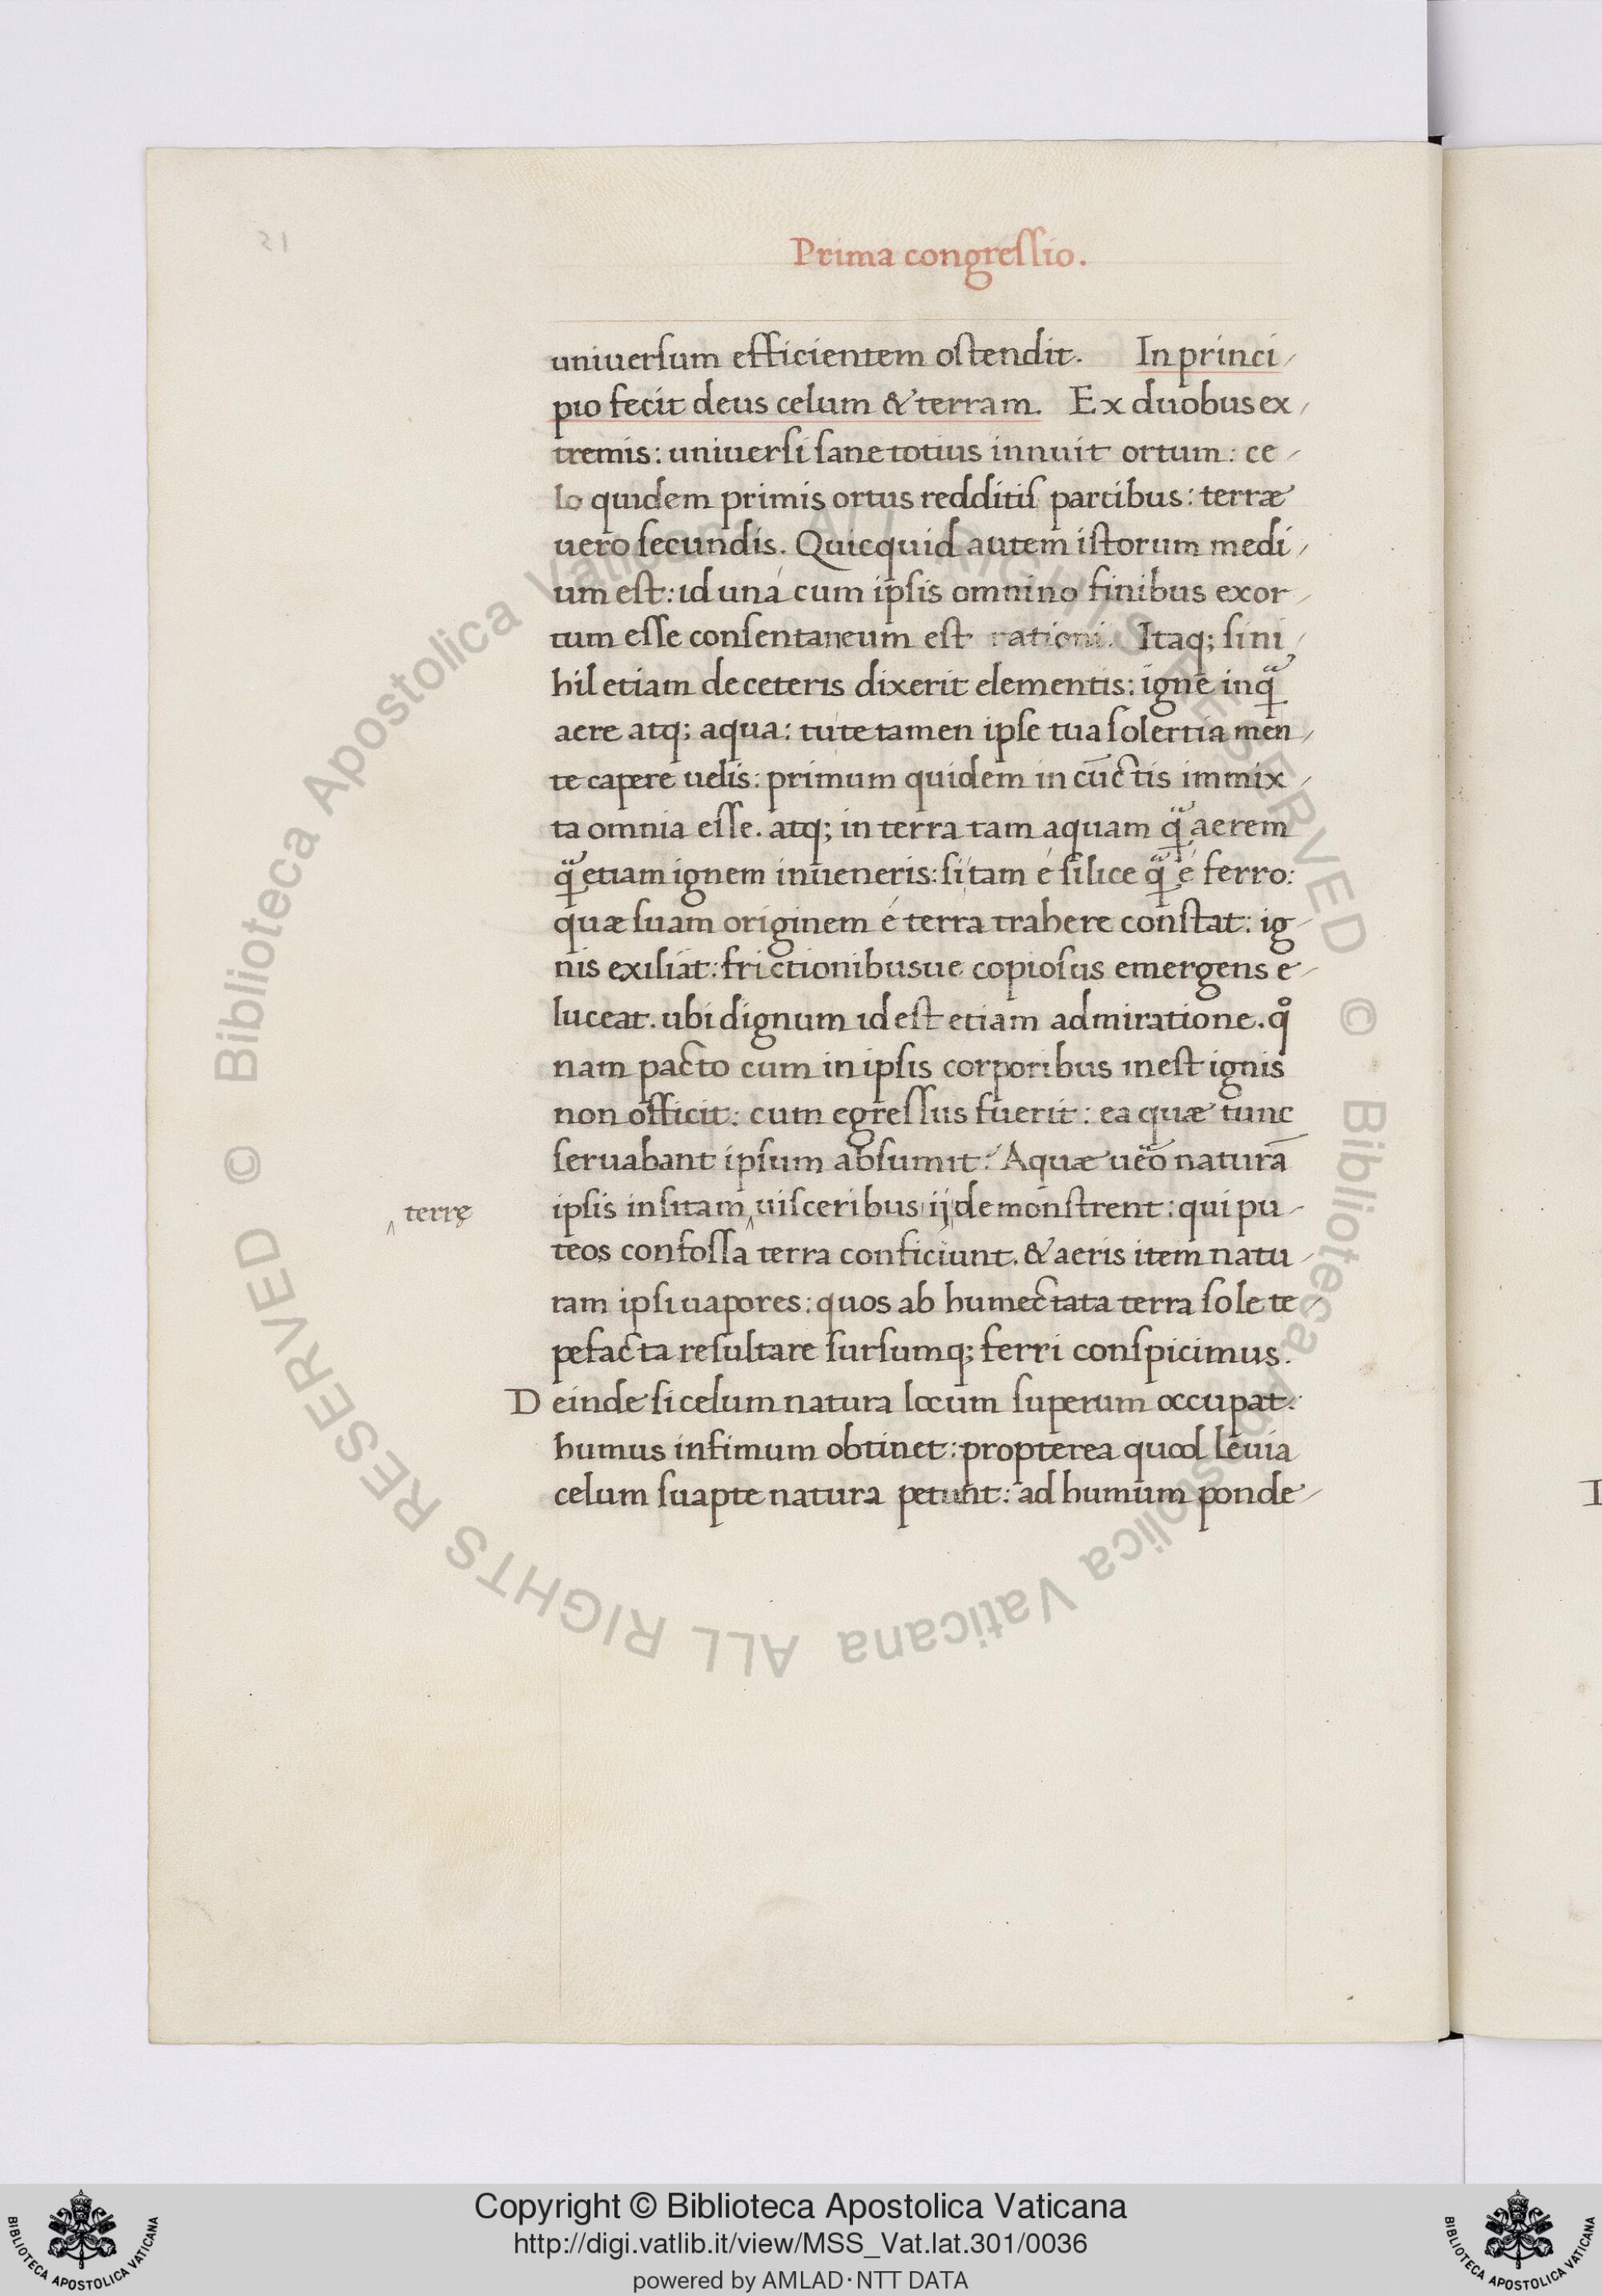 21
Prima congreſſio.
uniuerſum efficientem oſtendit. In princi⸗
pio fecit deus celum & terram. Ex duobus ex⸗
tremis: uniuerſi ſane totius innuit ortum: ce⸗
lo quidem primis ortus redditiſ partibus: terræ
uero ſecundis. Quicquid autem iſtorum medi⸗
um eſt: id uná cum ipſis omnino finibus exor⸗
tum eſſe conſentaneum eſt rationi. Itaq; ſi ni⸗
hil etiam de ceteris dixerit elementis: igne inq̃
aere atq; aqua: tute tamen ipſe tua ſolertia men⸗
te capere uelis: primum quidem in cūctis immix⸗
ta omnia eſſe. atq; in terra tam aquam q̃ aerem
q̃ etiam ignem inueneris: ſi tam é ſilice q̃ é ferro:
quæ ſuam originem é terra trahere conſtat: ig⸗
nis exiliat: frictionibusue copioſus emergens e⸗
luceat. ubi dignum id eſt etiam admiratione. qͦ
nam pacto cum in ipſis corporibus ineſt ignis
non officit: cum egreſſus fuerit: ea quæ tunc
ſeruabant ipſum abſumit. Aquæ ueõ naturā
‸ terrę
ipſis inſitam ‸ uiſceribus ij demonſtrent: qui pu⸗
teos confoſſa terra conficiunt. & aeris item natu⸗
ram ipſi uapores: quos ab humectata terra ſole te⸗
pefacta reſultare ſurſumq; ferri conſpicimus.
Deinde ſi celum natura locum ſuperum occupat:
humus infimum obtinet: propterea quod leuia
celum ſuapte natura petunt: ad humum ponde⸗
I
© Biblioteca Apostolica Vaticana ALL RIGHTS RESERVED © Biblioteca Apostolica Vaticana ALL RIGHTS RESERVED
BIBLIOTECA APOSTOLICA VATICANA
Copyright © Biblioteca Apostolica Vaticana
http://digi.vatlib.it/view/MSS_Vat.lat.301/0036
powered by AMLAD·NTT DATA
BIBLIOTECA APOSTOLICA VATICANA